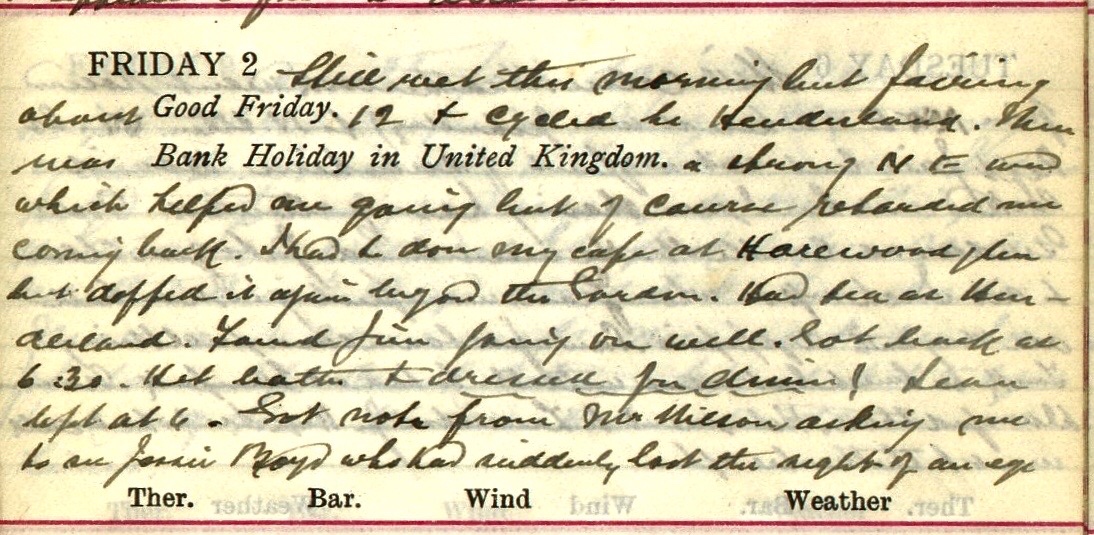 FRIDAY 2 Still wet this morning but fairing
about Good Friday. 12 & cycled to Henderland. There
was Bank Holiday in United Kingdom. a strong N E wind
which helped me going but of course retarded me
coming back. I had to don my cape at Harewood glen
but doffed it again beyond the Gordon. Had tea at Hen-
derland. Found Jim going on well. Got back at
6.30. Het bath & dressed for dinner!
left at 6. Got note from Mr Wilson asking me
to see Jessie Boyd who had suddenly lost the sight of an eye
Ther. Bar. Wind Weather